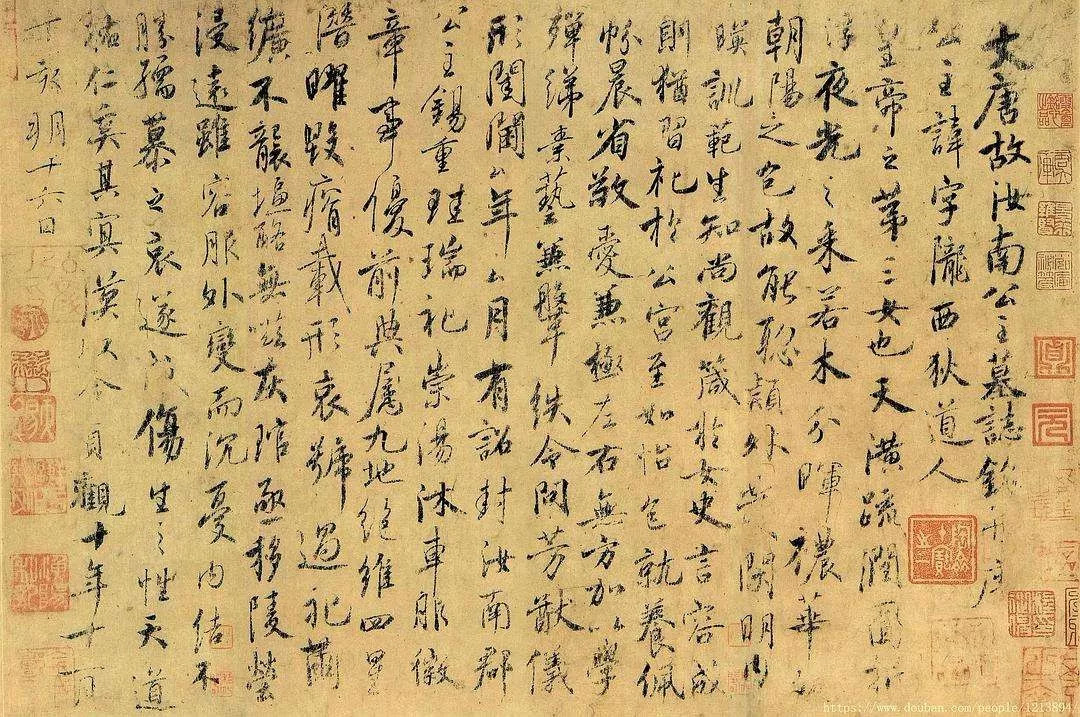 大唐故汝南公主墓誌銘并序
公主諱字隴西狄道人
皇帝之第三女也天潢疏潤圓折
浮夜光之采若木分暉穠華
朝陽之色故能聰穎外發閑明內
暎訓範生知尚觀箴於女史言容成
則猶習祀於公宮至如怡色就養佩
帉晨省敬愛兼極左右無方加以學
殫綈素藝兼鞶紩令問芳猷儀
形閨閫公年公月有詔封汝南郡
公主錫重珪瑞礼崇湯沐車服徽
章事優前典属九地絕維四星
潛曜毀瘠載形哀號過礼繭
纊不襲塩酪無嗞灰琯亟移陵塋
浸遠雖容服外變而沉憂內結不
勝孺慕之哀遂成傷生之性天道
祐仁奚其冥漠以今貞觀十年十一月
丁亥朔十六日
https://www.douban.com/people/1213894/